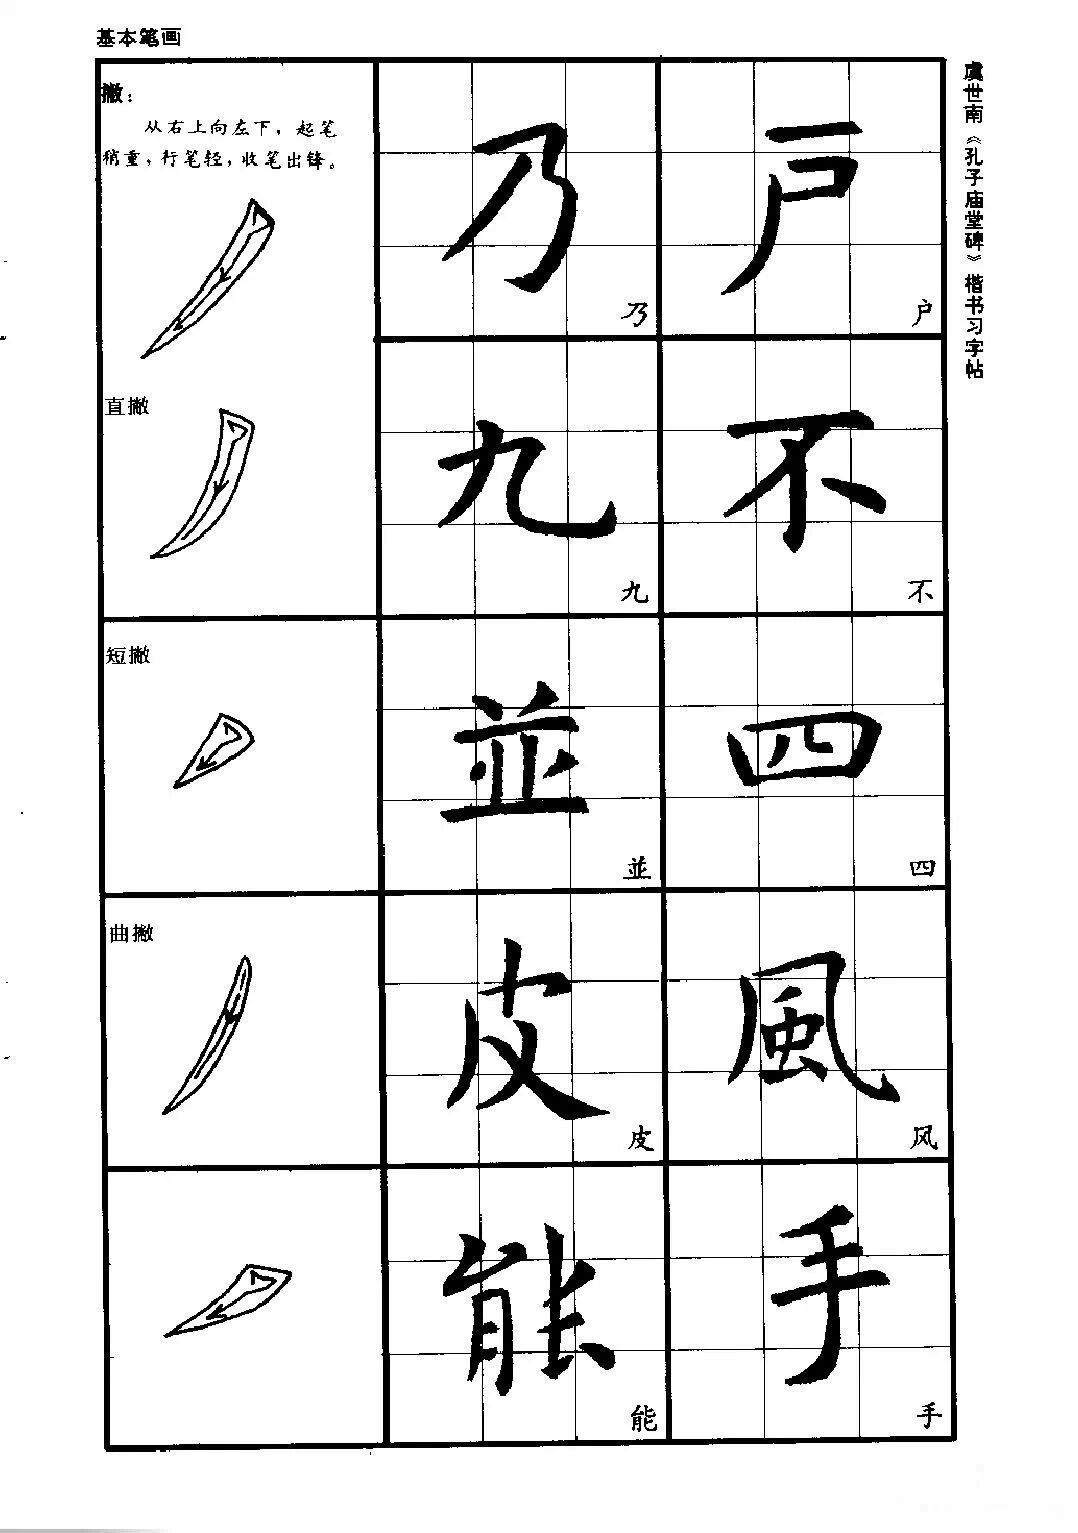 基本笔画
撇：
从右上向左下，起笔
稍重，行笔轻，收笔出锋。
乃 户
乃 户
直撇
九 不
九 不
短撇
並 四
並 四
曲撇
皮 風
皮 风
能 手
能 手
虞世南《孔子庙堂碑》楷书习字帖